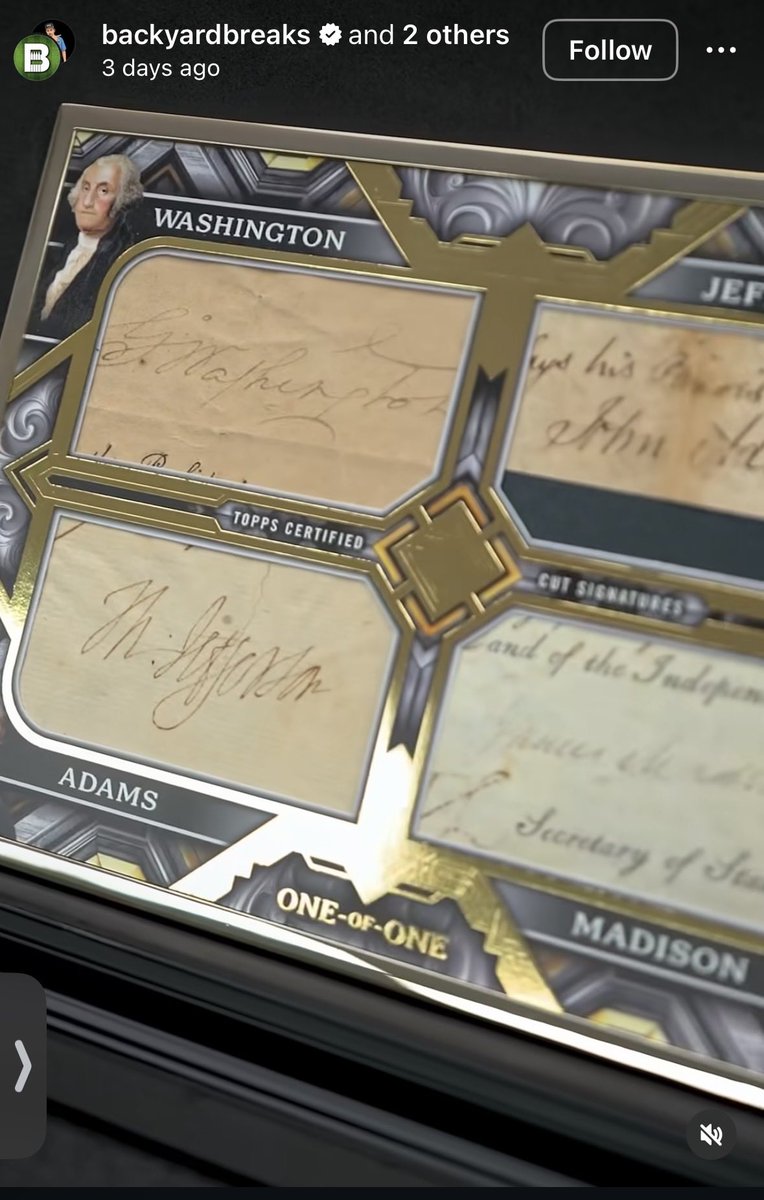 backyardbreaks and 2 others
3 days ago
Follow
B
WASHINGTON
JEF
G. Washington
his
John
TOPPS CERTIFIED
CUT SIGNATURES
Th. Jefferson
and of the Indepen
Secretary of Sta
ADAMS
MADISON
ONE-OF-ONE